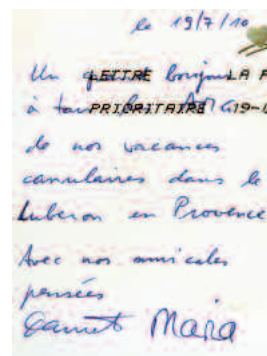 le 19/7/10
Un grand bonjour
LETTRE LA P
à tous
PRIORITAIRE 19-0
de nos vacances
caniculaires dans le
Luberon en Provence
Avec nos amicales
pensées
Maria